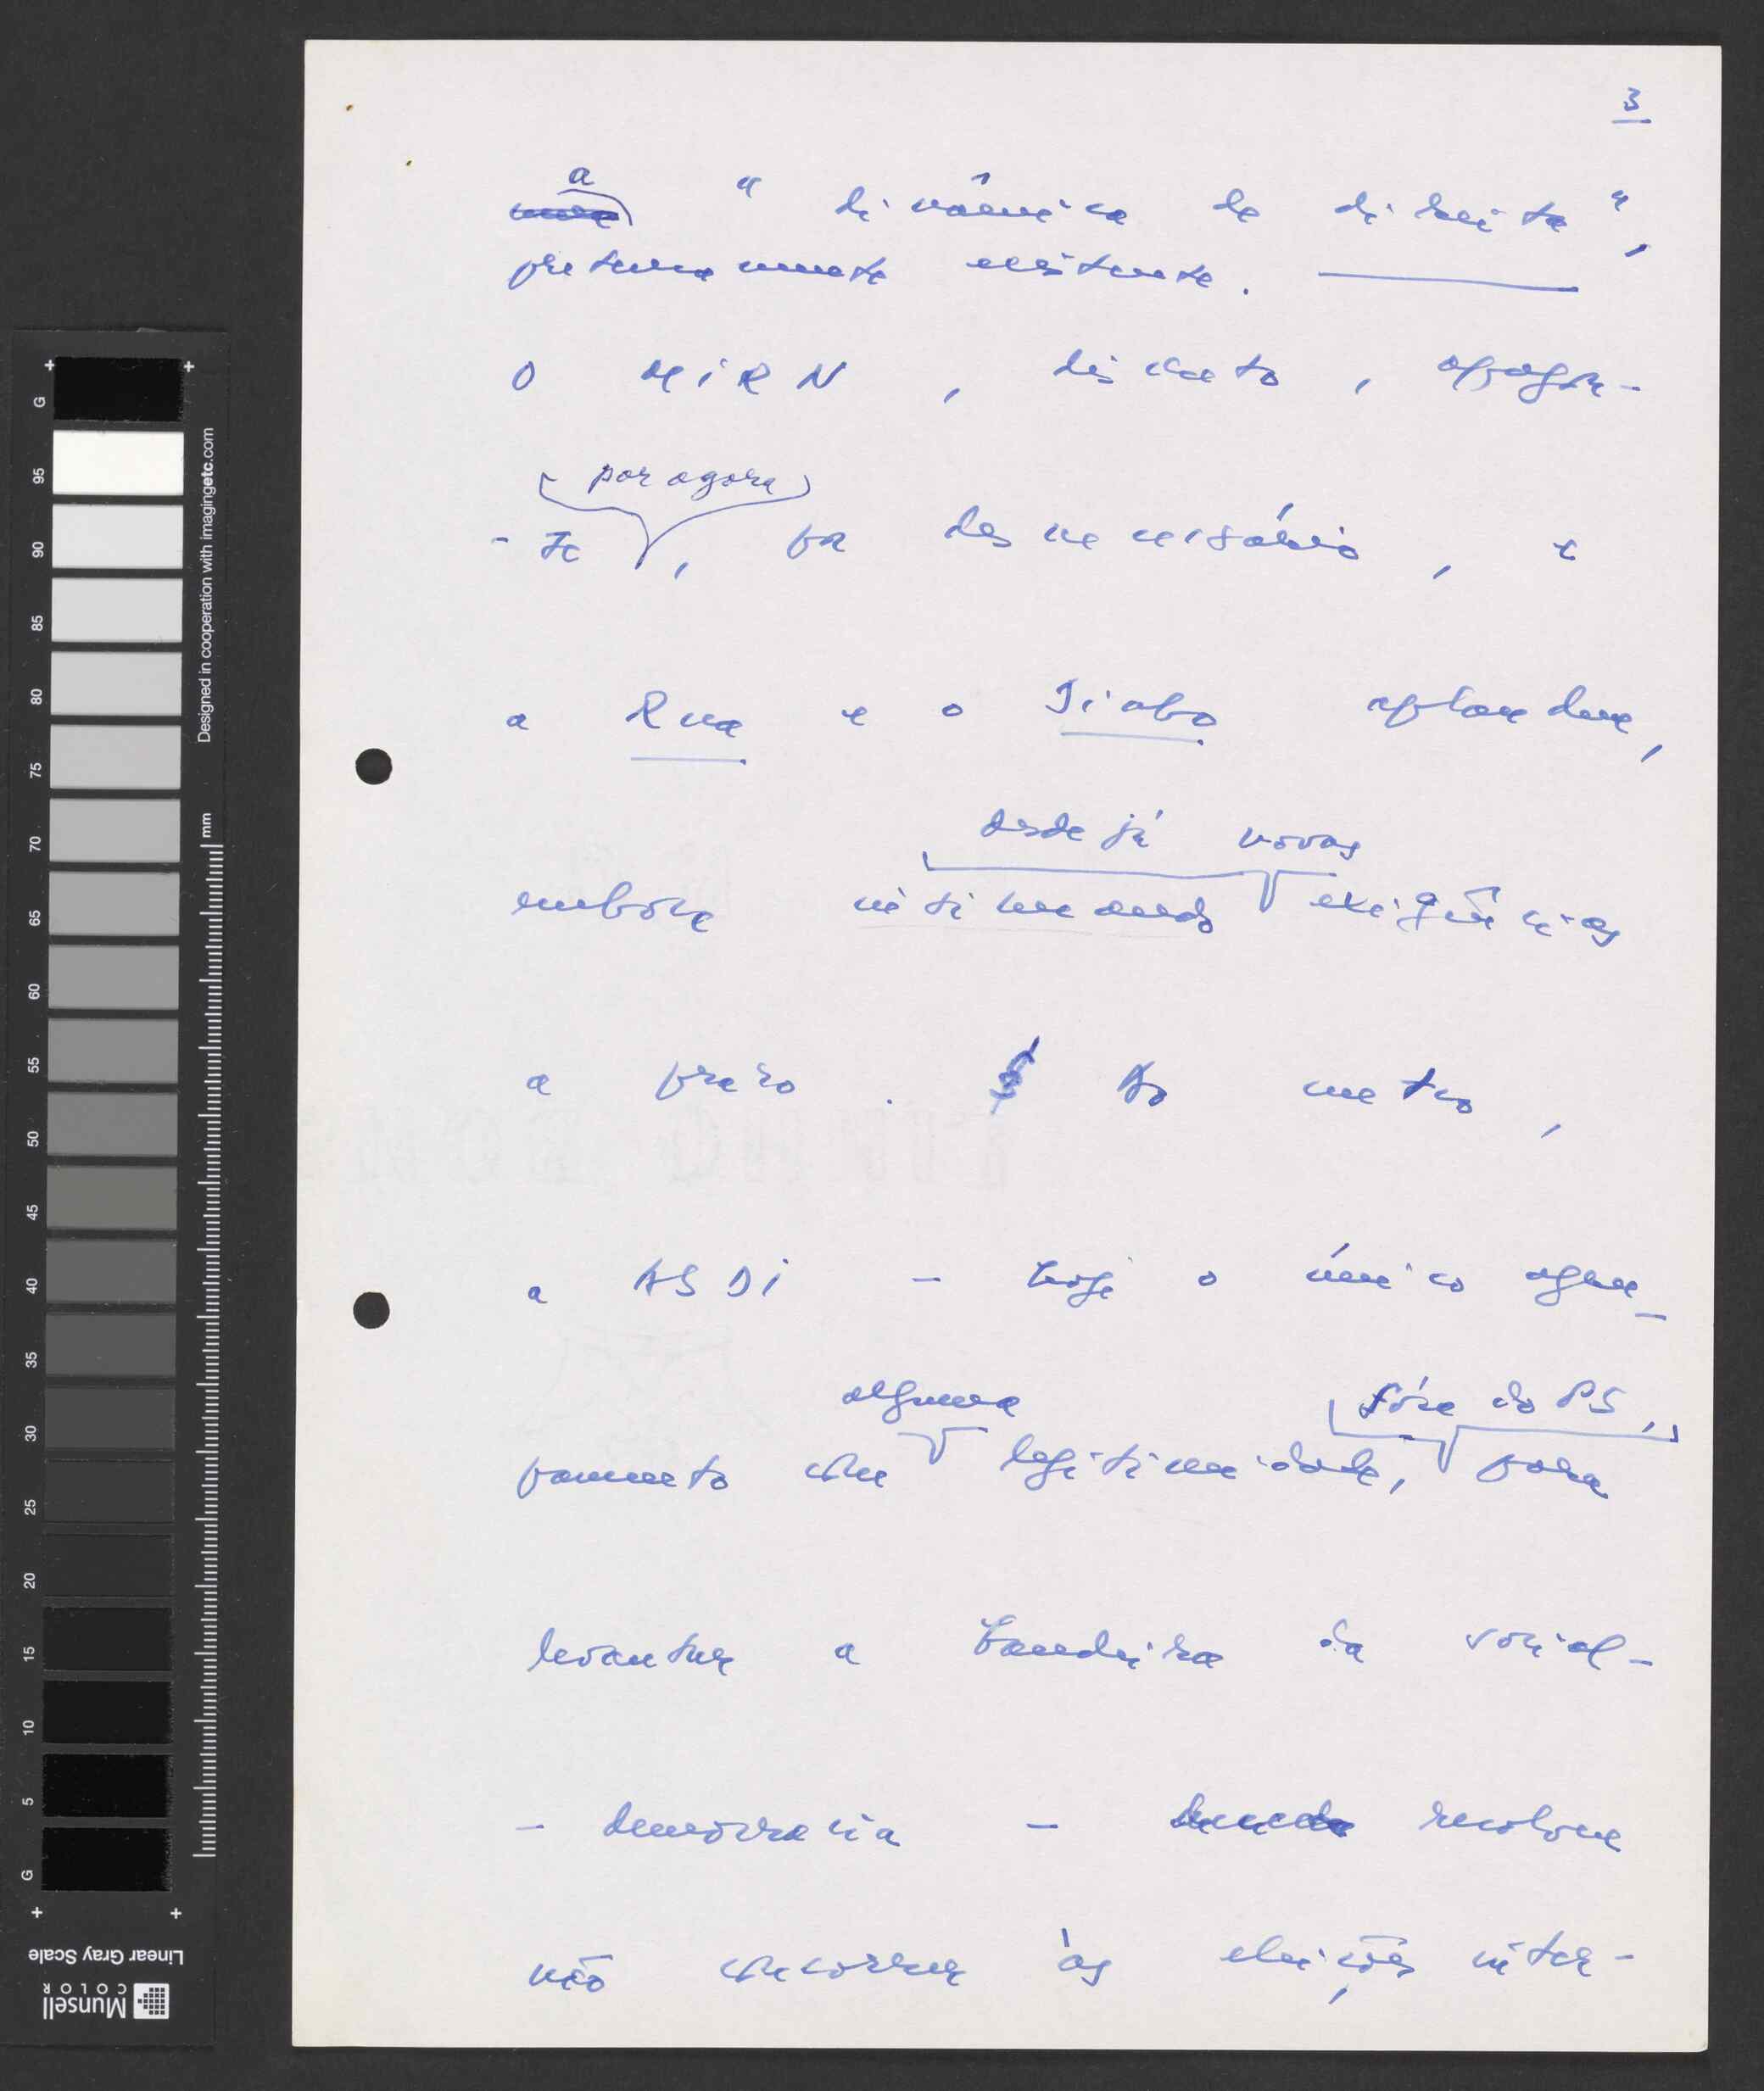 3
a
"dinâmica de direita",
pretensamente existente.
O MIRN, discreto, apaga-
por agora
-se, por desnecessário, e
a Rua e o Diabo aplaudem,
desde já novas
embora intimando exigências
a prazo. Do metro,
a ASDI - hoje o único agru-
alguma fóra do PS,
pamento com legitimidade, para
levantar a bandeira da social-
- democracia - resolveu
não concorrer às eleições inter-
G
95
90
85
80
75
70
65
60
55
50
45
40
35
30
25
20
15
10
5
G
mm
Designed in cooperation with imagingetc.com
Linear Gray Scale
Munsell
COLOR